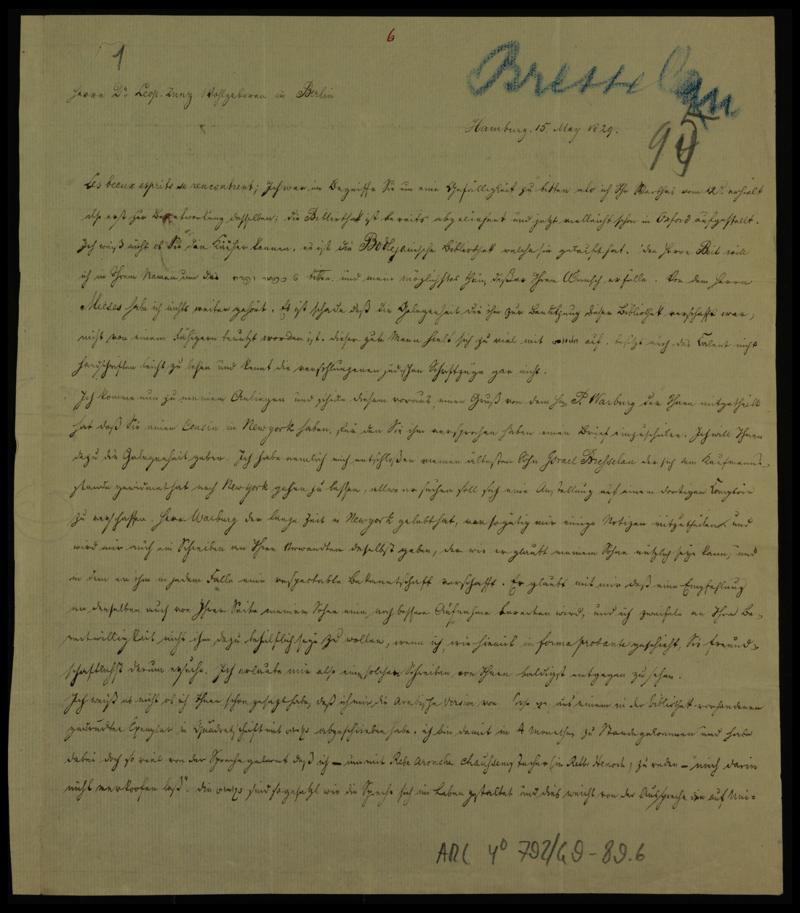 1
6
Bresselau
Herrn Dr Leop. Zunz Wohlgeboren in Berlin
Hamburg. 15. May 1829.
Les beaux esprits se rencontrent; Ich war im Begriffe Sie um eine Gefälligkeit zu bitten als ich Ihr Werthes vom 12t. erhielt
also erst zur Beantwortung desselben; die Bibliothek ist bereits abgeliefert und jetzt vielleicht schon in Oxford aufgestellt.
Ich weiß nicht ob Sie den Käufer kennen, es ist die Bodlejanische Bibliothek welche sie gekauft hat. Den Herrn Beit will
ich in Ihrem Namen um das und mein möglichstes thun, daß er Ihren Wunsch erfülle. Von dem Herrn
Meises habe ich nichts weiter gehört. Es ist schade daß die Gelegenheit die ihm zur Benutzung dieser Bibliothek verschafft war,
nicht von einem Fähigern benutzt worden ist. Dieser gute Mann hielt sich zu viel mit auf, besitzt auch das Talent nicht
Handschriften leicht zu lesen und kennt die verschlungenen jüdischen Schriftzüge gar nicht.
Ich komme nun zu meinem Anliegen und schicke diesem voraus, einen Gruß von dem Hn P. Warburg der Ihnen mitgetheilt
hat daß Sie einen Cousin in Newyork haben, für den Sie ihm versprochen haben einen Brief einzuschicken. Ich will Ihnen
dazu die Gelegenheit geben. Ich habe nemlich mich entschloßen meinen ältesten Sohn Israel Bresselau der sich dem Kaufmanns-
stande gewidmet hat nach Newyork gehen zu lassen, allwo er suchen soll sich eine Anstellung auf einem dortigen Comptoir
zu verschaffen. Herr Warburg der lange Zeit in Newyork gelebt hat, war so gütig mir einige Notizen mitzutheilen, und
wird mir auch ein Schreiben an Ihren Verwandten daselbst geben, der wie er glaubt meinem Sohne nützlich seyn kann, und
in dem er ihm in jedem Falle eine respectable Bekanntschaft verschafft. Er glaubt mit mir daß eine Empfehlung
an denselben auch von Ihrer Seite meinem Sohne eine noch bessere Aufnahme bereiten wird, und ich zweifele an Ihre Be-
reitwilligkeit nicht ihm dazu behülflich seyn zu wollen, wenn ich, wie hiemit in forma probante geschieht, Sie freund-
schaftlichst darum ersuche. Ich erlaube mir also einem solchen Schreiben, von Ihnen baldigst entgegen zu sehen.
Ich weiß nicht ob ich Ihnen schon gesagt habe, daß ich mir die Arabische Version von aus einem in der Bibliothek vorhandenen
gedruckten Exemplar in Quadratschrift mit abgeschrieben habe. Ich bin damit in 4 Monathen zu Stande gekommen und habe
dabei doch so viel von der Sprache gelernt daß ich — um mit Rebbe zu reden — "mich darin
nicht verkoofen laß". Die sind so gesetzt wie die Sprache sich im Leben gestaltet und dies weicht von der Aussprache die auf Uni-
ARC 4o 792/G9-89.6